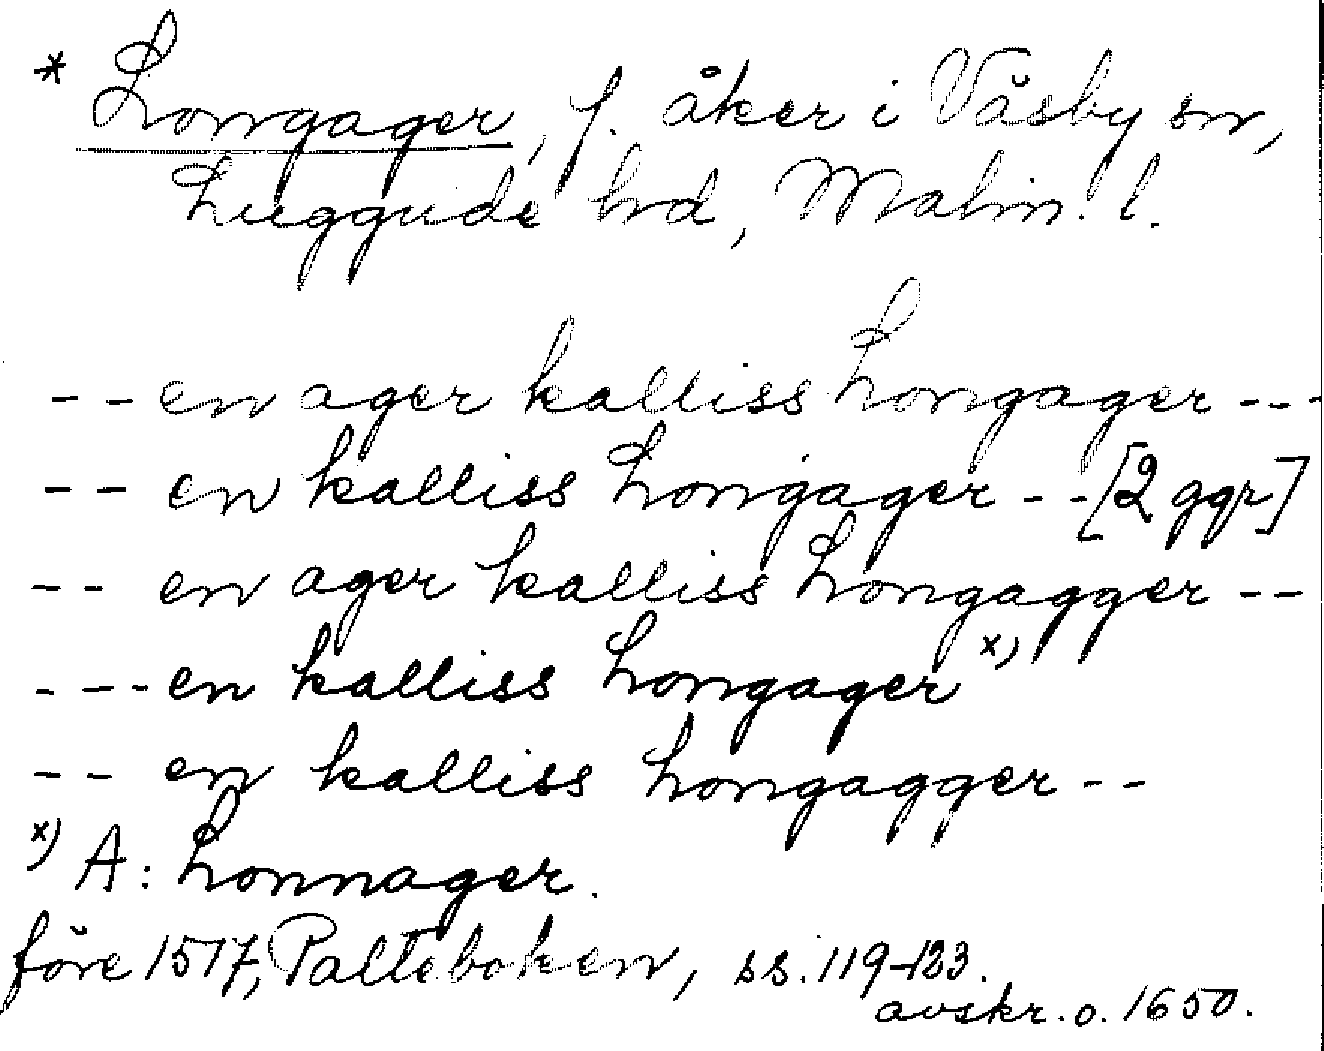 * Longager, f. åker i Väsby sn,
Luggude hd, Malm. l.
-- en ager kalliss Longager ---
-- en kalliss Longager -- [2 ggr]
-- en ager kalliss Longagger --
--- en kalliss Longager x)
-- en kalliss Longagger --
x) A: Lonnager.
före 1517, Palteboken, ss. 119-123.
avskr. o. 1650.